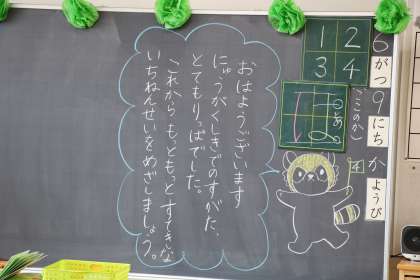 おはようございます
にゅうがくしきでのすがた、
とてもりっぱでした。
これから もっともっと すてきな
いちねんせいをめざしましょう。
6がつ9にちかようび
(ここのか)
1 2
3 4
は
4